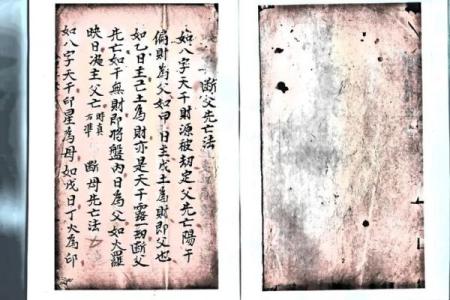 断父先亡法
如八字天干財源被刼定父先亡陽干
偏財為父如甲日主戊土為財即父也
如乙日主己土為財亦是天干露一刼断父
先亡如干無財即将盤内日為父如火羅
映日次主父亡時真方準 断母先亡法
如八字天干印星為母如戊日丁火為印